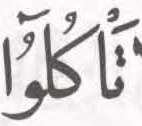 تَأْكُلُوٓا